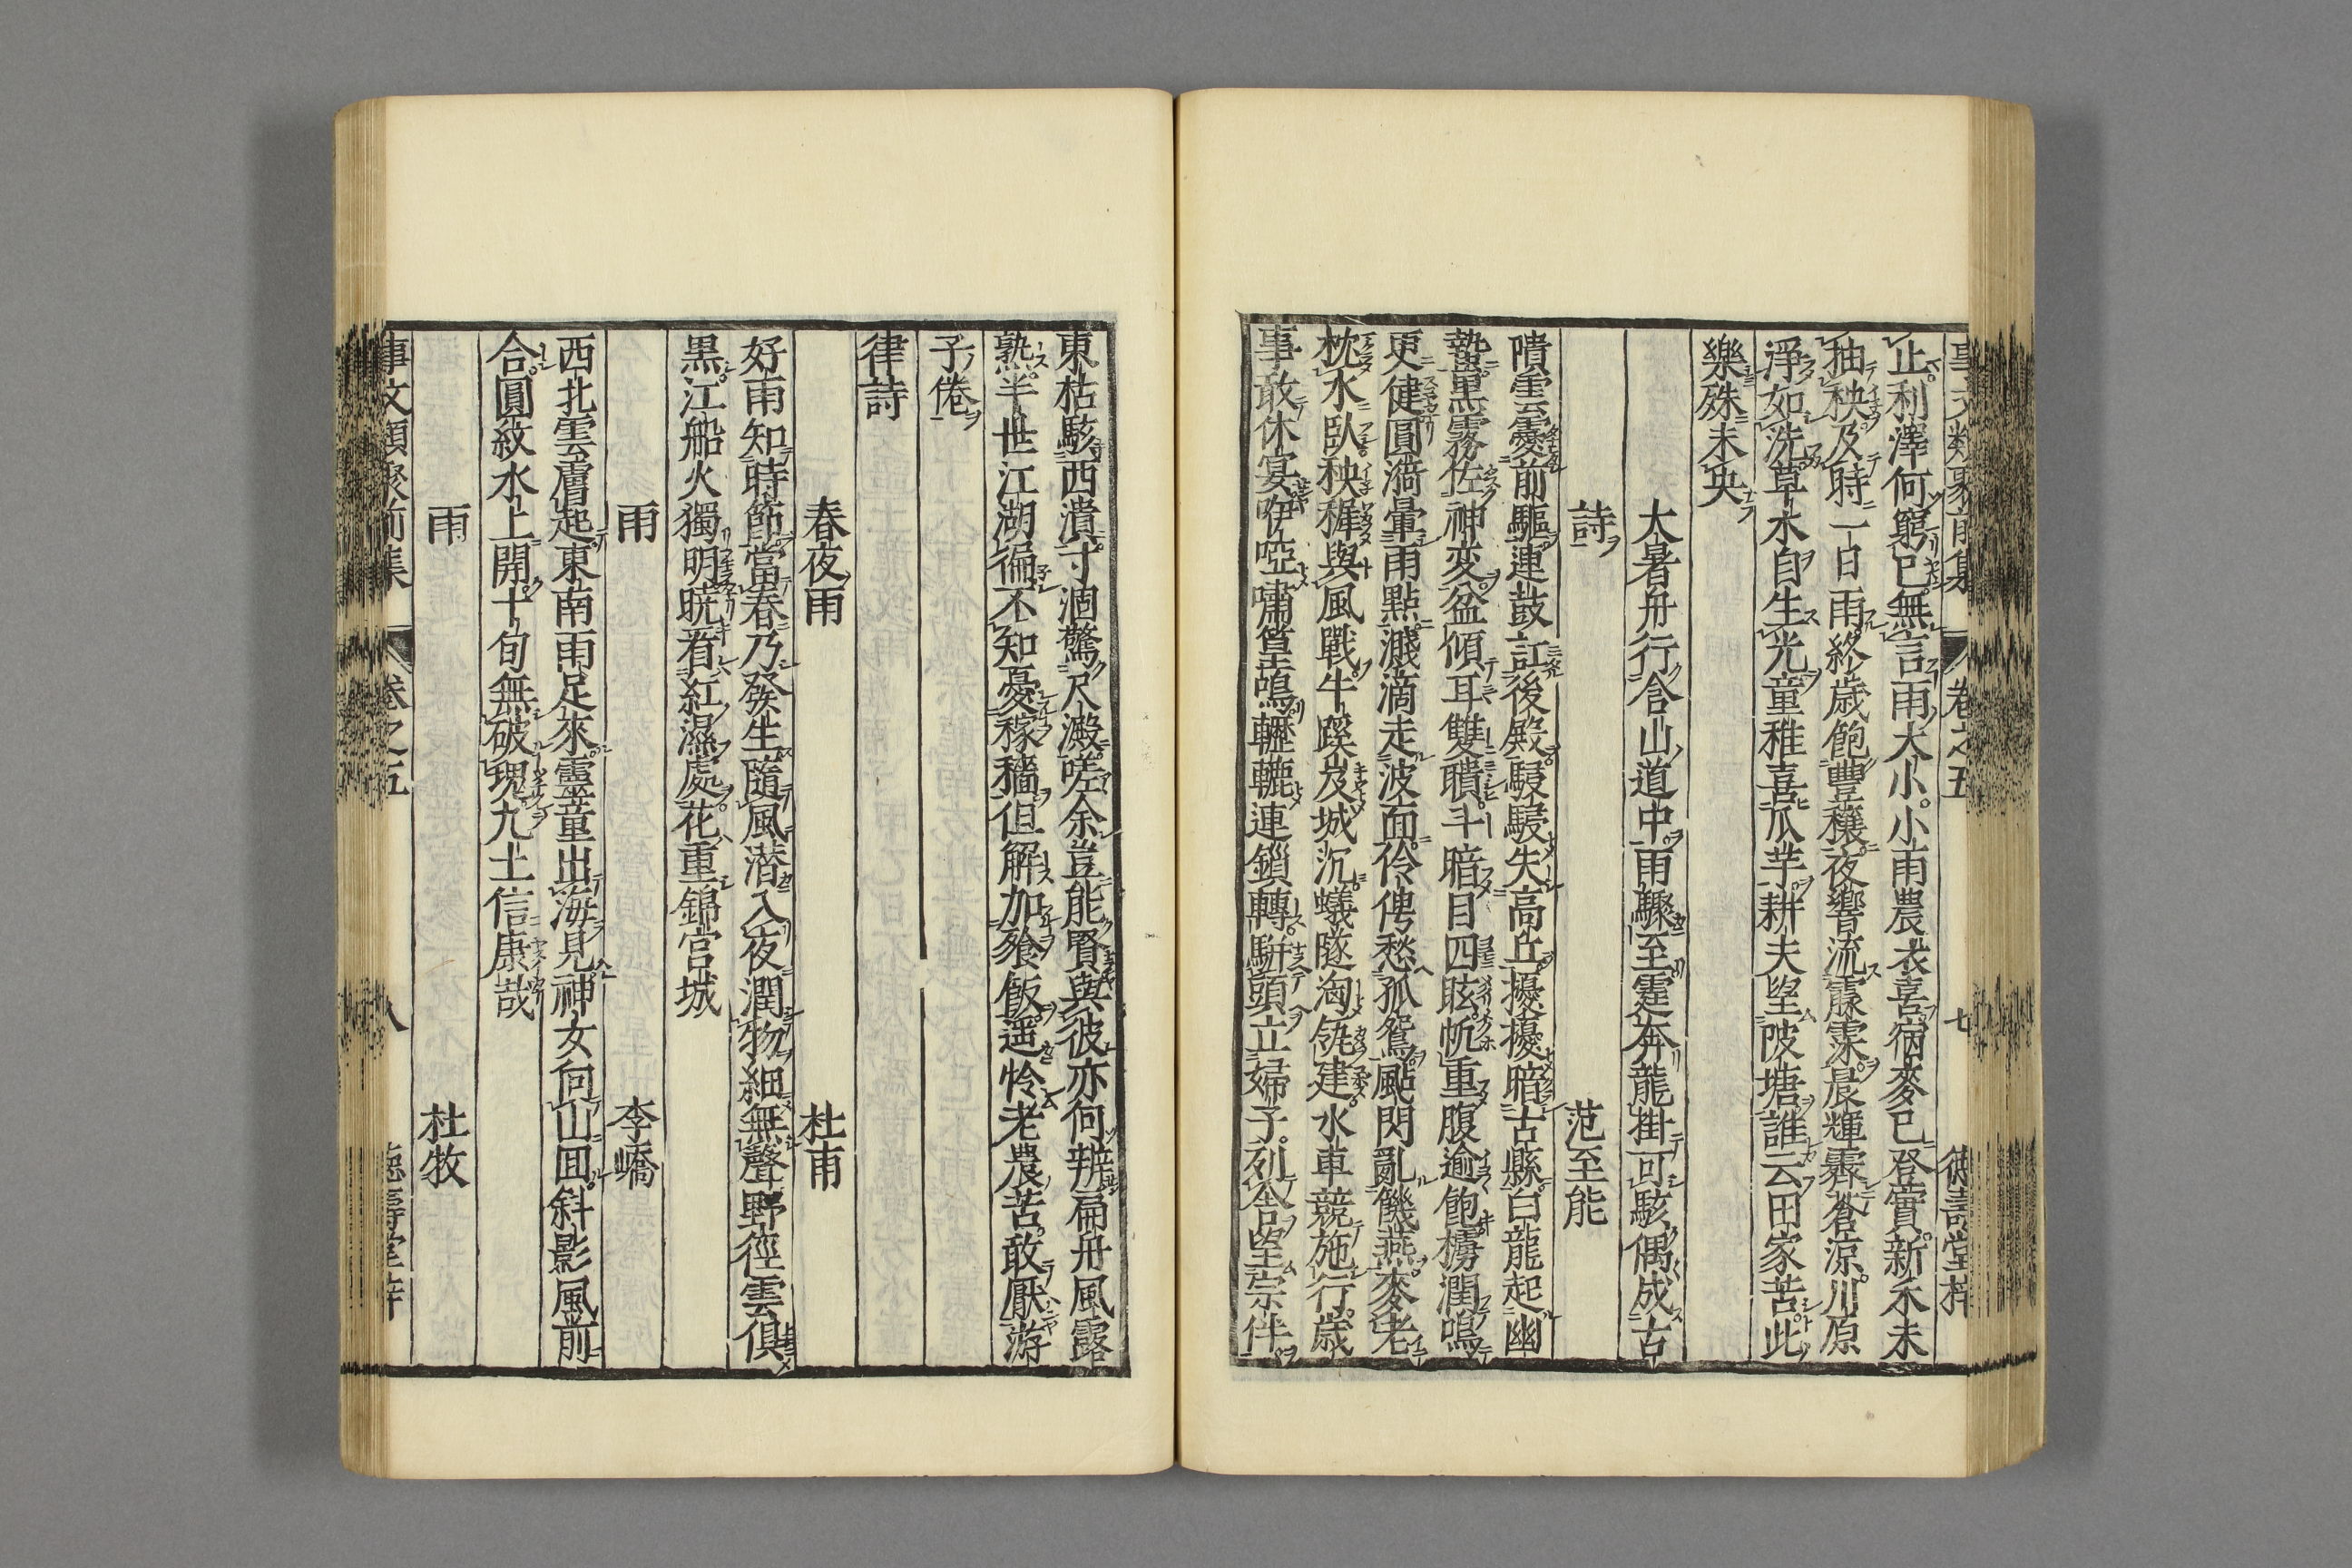 事文類聚前集 卷之五 七 德壽堂梓
止利澤何窮已無言雨大小小雨農衣喜宿麥已登實新禾未
抽秧及時一日雨終歲飽豐穰夜響流霢霂晨輝霽蒼涼川原
淨如洗草木自生光童稚喜瓜芋耕夫望陂塘誰云田家苦此
樂殊未央
大暑舟行含山道中雨驟至霆奔龍掛可駭偶成古
詩 范至能
隤雲靉前驅連鼓訌後殿駸駸失高丘擾擾暗古縣白龍起幽
蟄黑霧佐神變盆傾耳雙聵斗暗目四眩帆重腹逾飽櫓潤鳴
更健圓漪暈雨點濺滴走波面伶俜愁孤鴛颭閃亂饑燕麥老
枕水臥秧穉與風戰牛蹊岌城沉蟻隧洶瓴建水車競施行歲
事敢休宴咿啞嘯簧鳴轣轆連鎖轉駢頭立婦子列舍望宗伴
東枯駭西潰寸涸驚尺澱嗟余豈能賢與彼亦何辨扁舟風露
熟半世江湖徧不知憂稼穡但解加飧飯遥怜老農苦敢厭游
子倦
律詩
春夜雨 杜甫
好雨知時節當春乃發生隨風潛入夜潤物細無聲野徑雲俱
黒江船火獨明曉看紅濕處花重錦宮城
雨 李嶠
西北雲膚起東南雨足來靈童出海見神女向山囬斜影風前
合圓紋水上開十旬無破塊九土信康哉
雨 杜牧
事文類聚前集 卷之五 八 德壽堂梓